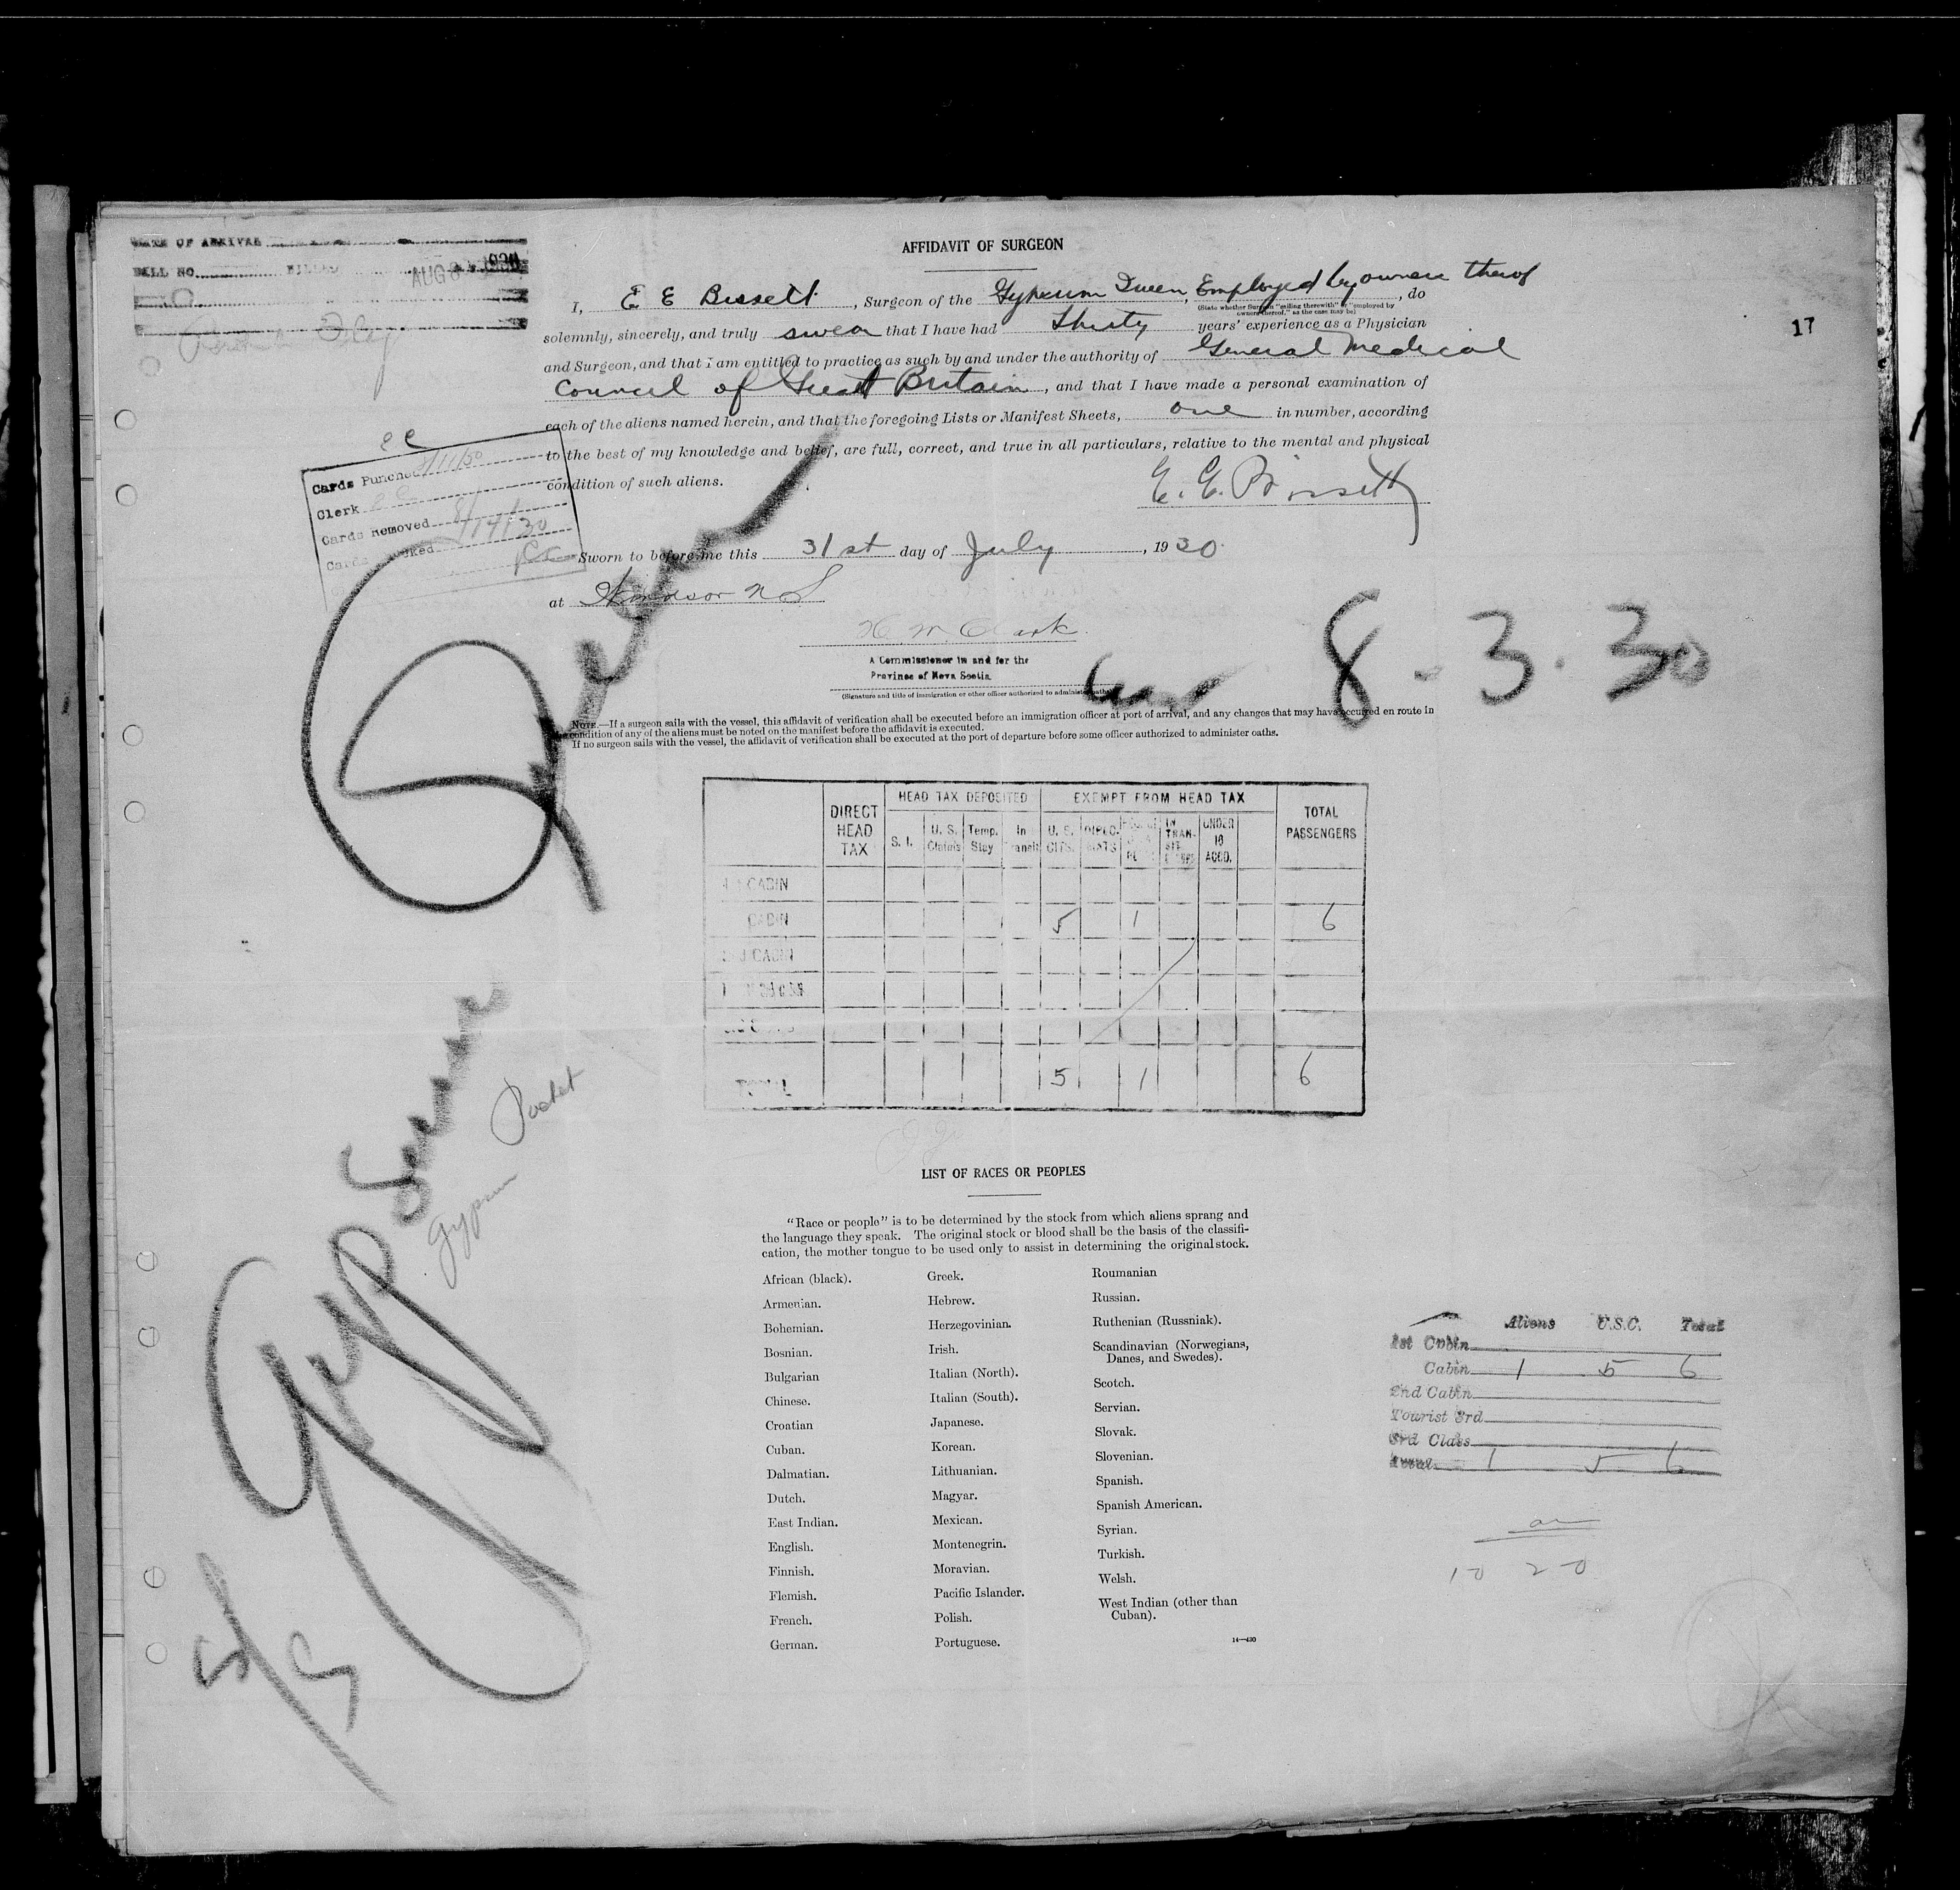 DATE OF ARRIVAL
BILL NO. AUG 3 1930
17
AFFIDAVIT OF SURGEON
I, E E Bissett, Surgeon of the Gypsum Queen, Employed by owners therof, do
(State whether Surgeon "sailing therewith" or "employed by
owners thereof," as the case may be)
solemnly, sincerely, and truly swear that I have had Thirty years' experience as a Physician
and Surgeon, and that I am entitled to practice as such by and under the authority of General Medical
Council of Great Britain, and that I have made a personal examination of
each of the aliens named herein, and that the foregoing Lists or Manifest Sheets, one in number, according
to the best of my knowledge and belief, are full, correct, and true in all particulars, relative to the mental and physical
condition of such aliens.
E. E. Bissett
Cards Punched 8/11/30
Clerk
Cards Removed 8/14/30
Sworn to before me this 31st day of July, 1930
at Windsor N S
H. M. Clark
A Commissioner in and for the
Province of Nova Scotia
(Signature and title of immigration or other officer authorized to administer oaths)
8-3-30
NOTE.—If a surgeon sails with the vessel, this affidavit of verification shall be executed before an immigration officer at port of arrival, and any changes that may have occurred en route in
the condition of any of the aliens must be noted on the manifest before the affidavit is executed.
If no surgeon sails with the vessel, the affidavit of verification shall be executed at the port of departure before some officer authorized to administer oaths.
Gypsum Queen
DIRECT HEAD TAX
HEAD TAX DEPOSITED
EXEMPT FROM HEAD TAX
TOTAL PASSENGERS
S. I. U. S. Claims Temp. Stay In Transit U. S. CITS. DIPLO-MATS IN TRAN-SIT UNDER 16 ACCD.
CABIN
CABIN 5 1 6
CABIN
TOTAL 5 1 6
Gypsum Packet
LIST OF RACES OR PEOPLES
"Race or people" is to be determined by the stock from which aliens sprang and
the language they speak. The original stock or blood shall be the basis of the classifi-
cation, the mother tongue to be used only to assist in determining the original stock.
African (black).
Armenian.
Bohemian.
Bosnian.
Bulgarian
Chinese.
Croatian
Cuban.
Dalmatian.
Dutch.
East Indian.
English.
Finnish.
Flemish.
French.
German.
Greek.
Hebrew.
Herzegovinian.
Irish.
Italian (North).
Italian (South).
Japanese.
Korean.
Lithuanian.
Magyar.
Mexican.
Montenegrin.
Moravian.
Pacific Islander.
Polish.
Portuguese.
Roumanian
Russian.
Ruthenian (Russniak).
Scandinavian (Norwegians,
Danes, and Swedes).
Scotch.
Servian.
Slovak.
Slovenian.
Spanish.
Spanish American.
Syrian.
Turkish.
Welsh.
West Indian (other than
Cuban).
14—430
Aliens U.S.C. Total
1st Cabin
Cabin 1 5 6
2nd Cabin
Tourist 3rd
3rd Class
Total 1 5 6